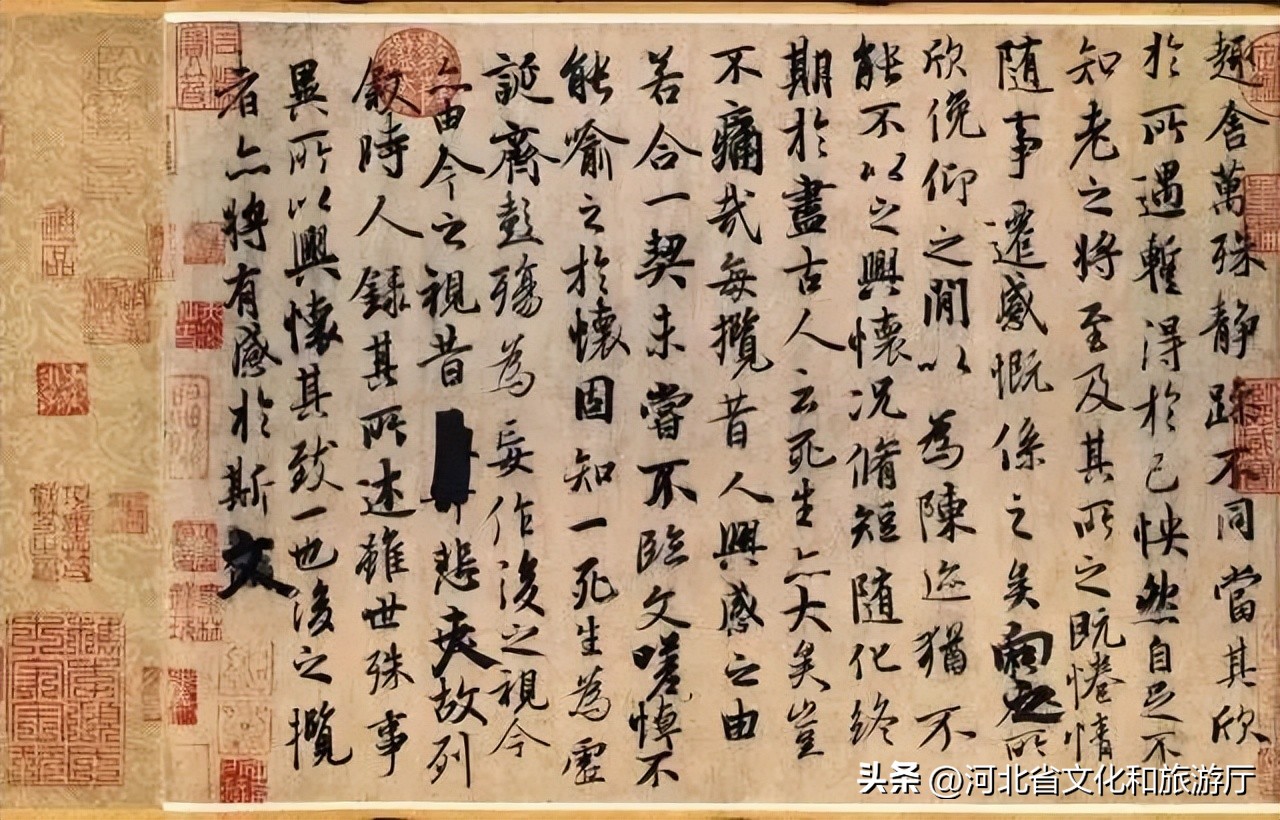 趣舍萬殊静躁不同當其欣
於所遇暫得於己怏然自足不
知老之將至及其所之既惓情
随事遷感慨係之矣向之所
欣俛仰之閒以為陳迹猶不
能不以之興懷況脩短随化終
期於盡古人云死生亦大矣豈
不痛哉每攬昔人興感之由
若合一契未嘗不臨文嗟悼不
能喻之於懷固知一死生為虛
誕齊彭殤為妄作後之視今
亦由今之視昔悲夫故列
叙時人錄其所述雖世殊事
異所以興懷其致一也後之攬
者亦將有感於斯文
神品
头条 @河北省文化和旅游厅